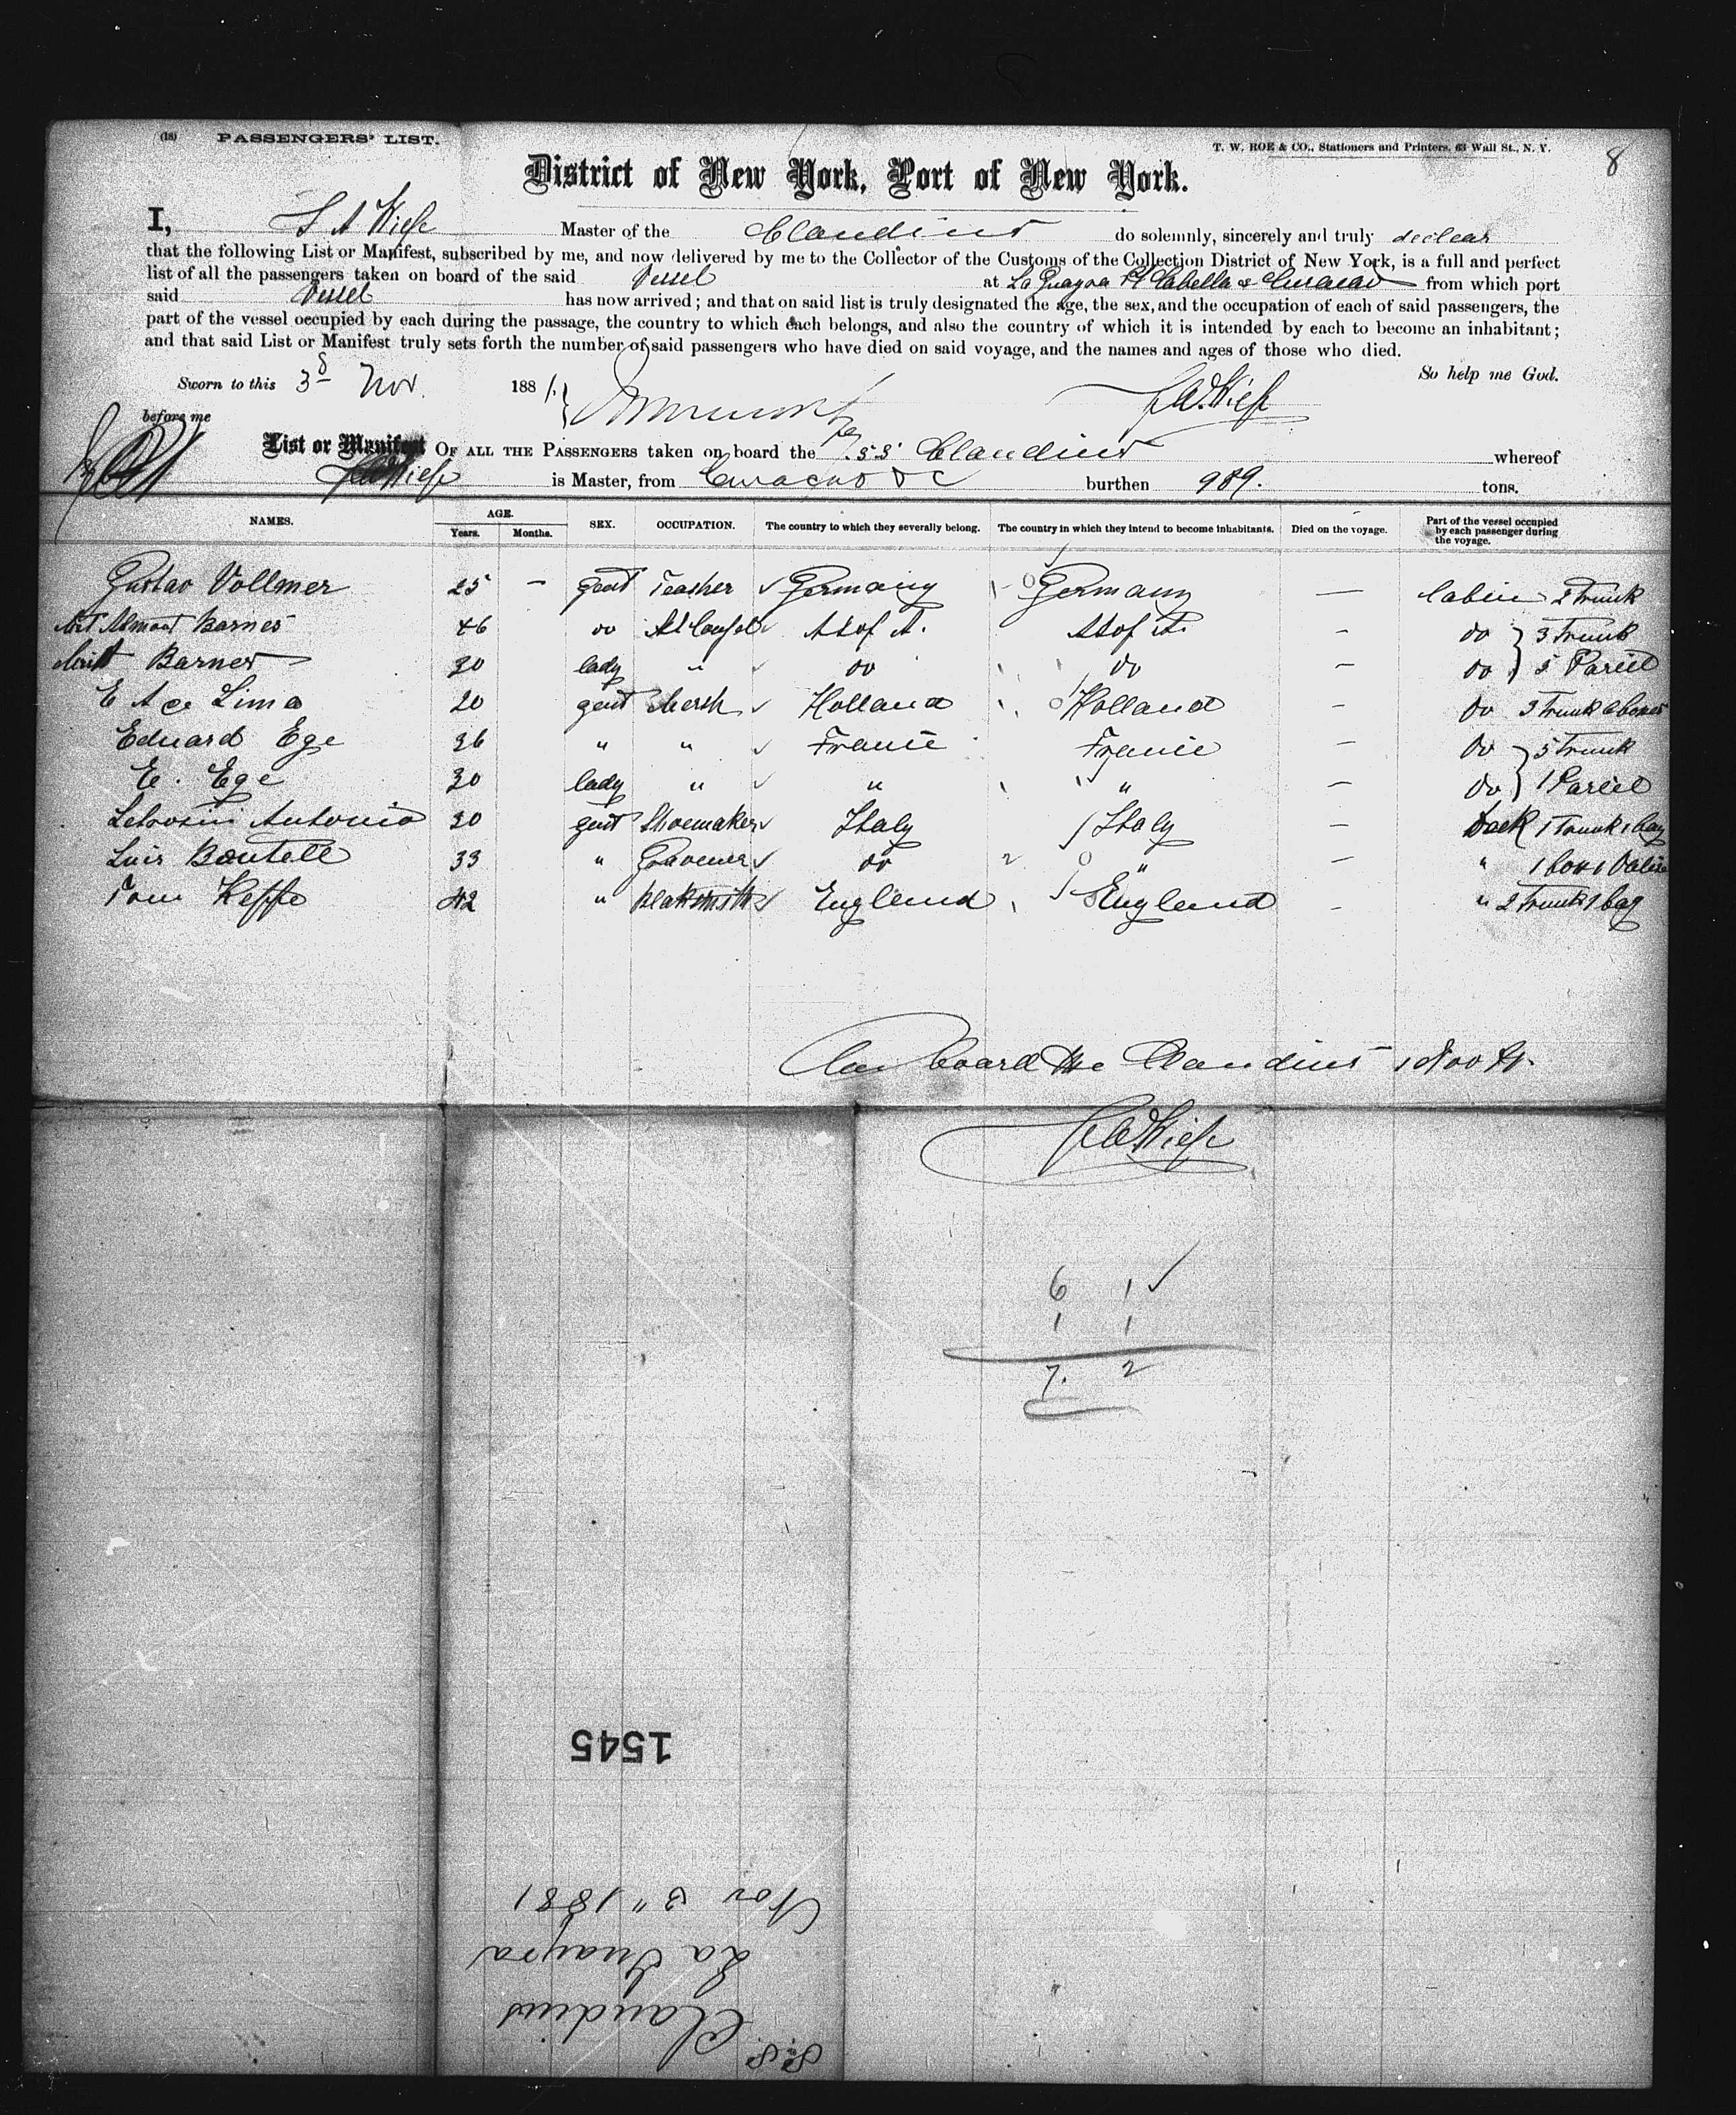 (18) PASSENGERS' LIST.
T. W. ROE & CO., Stationers and Printers, 63 Wall St., N. Y.
8
District of New York, Port of New York.
I, Master of the Claudius do solemnly, sincerely and truly declear
that the following List or Manifest, subscribed by me, and now delivered by me to the Collector of the Customs of the Collection District of New York, is a full and perfect
list of all the passengers taken on board of the said Vessel at La Guayra P Cabella & Curacao from which port
said Vessel has now arrived; and that on said list is truly designated the age, the sex, and the occupation of each of said passengers, the
part of the vessel occupied by each during the passage, the country to which each belongs, and also the country of which it is intended by each to become an inhabitant;
and that said List or Manifest truly sets forth the number of said passengers who have died on said voyage, and the names and ages of those who died.
So help me God.
Sworn to this 3d Nov. 1881.
before me
List or Manifest OF ALL THE PASSENGERS taken on board the SS Claudius whereof
is Master, from Curacao burthen 989. tons.
NAMES. AGE. Years. Months. SEX. OCCUPATION. The country to which they severally belong. The country in which they intend to become inhabitants. Died on the voyage. Part of the vessel occupied by each passenger during the voyage.
Gustav Vollmer 25 — gent Teasher Germany Germany — Cabin 2 Trunk
Almont Barnes 46 do do 3 Trunk
Barnes 30 lady " do do — do 5 Parcel
E A de Lima 20 gent Mersh Holland Holland — do 3 Trunk
Eduard Ege 36 " " France France — do 5 Trunk
E. Ege 30 lady " " " — do 1 Parcel
Antonio 30 gent Shoemaker Italy Italy — Deck 1 Trunk 1 bag
Luis 33 " do " — " 1 box 1 Valise
Tom Keffe 42 " England England — " 2 Trunk 1 bag
On board the Claudius
6 1
1 1
7. 2
1545
S.S. Claudius
La Guayra
Nov 3" 1881